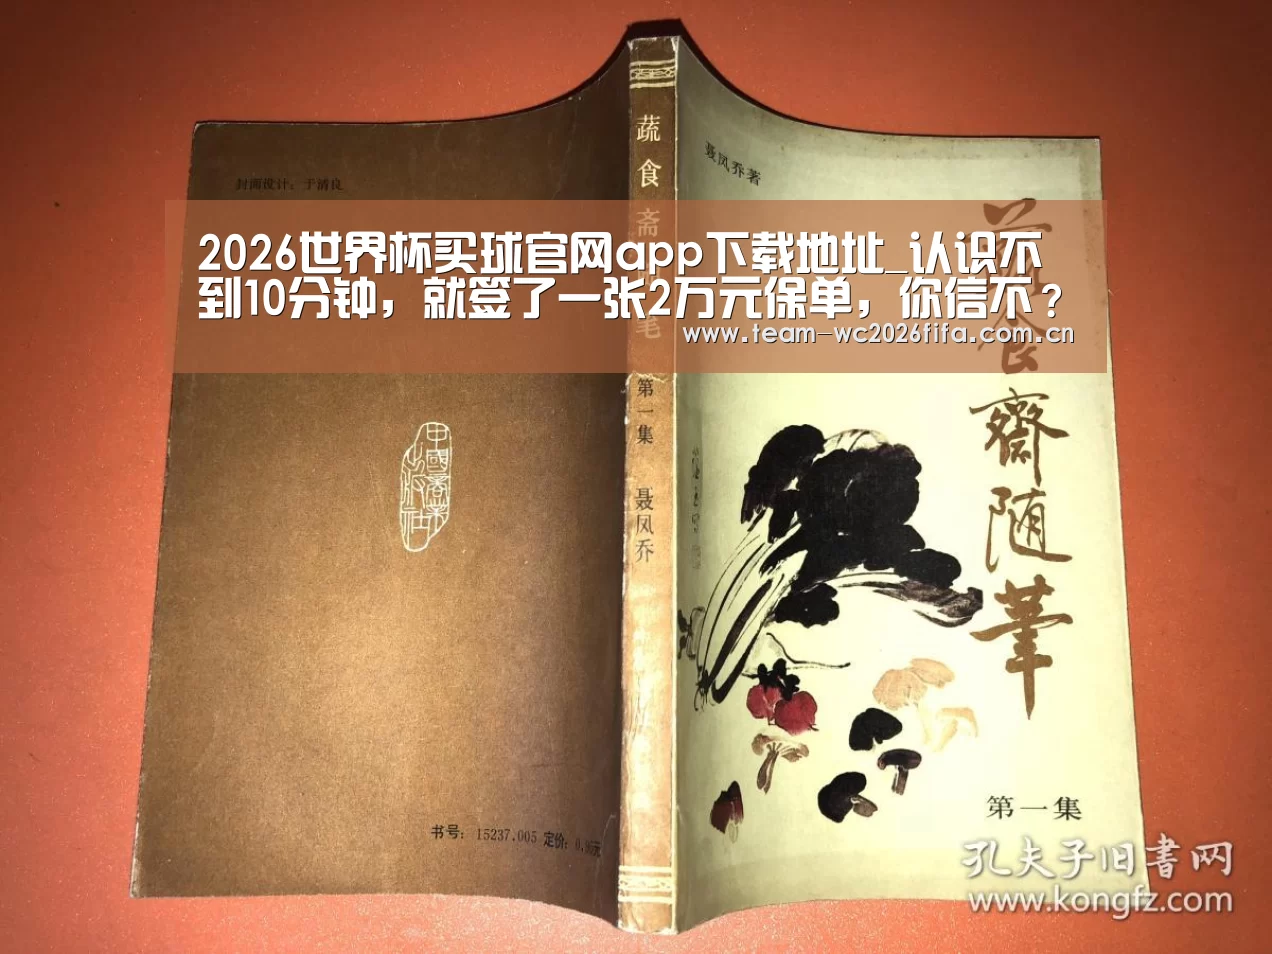 2026世界杯买球官网app下载地址_认识不
到10分钟，就签了一张2万元保单，你信不？
www.team-wc2026fifa.com.cn
封面设计：于清良
中國商業
出版社
书号：15237.005 定价：0.90元
蔬食斋随笔
第一集
聂凤乔
聂凤乔著
蔬食齋随筆
第一集
孔夫子旧書网
www.kongfz.com